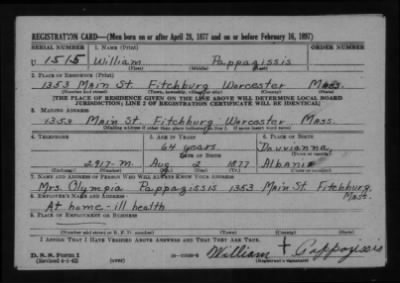 REGISTRATION CARD—(Men born on or after April 28, 1877 and on or before February 16, 1897)
SERIAL NUMBER 1. NAME (Print) ORDER NUMBER
U 1515 William Pappagissis
(First) (Middle) (Last)
2. PLACE OF RESIDENCE (Print)
1353 Main St. Fitchburg Worcester Mass.
(Number and street) (Town, township, village, or city) (County) (State)
[THE PLACE OF RESIDENCE GIVEN ON THE LINE ABOVE WILL DETERMINE LOCAL BOARD
JURISDICTION; LINE 2 OF REGISTRATION CERTIFICATE WILL BE IDENTICAL]
3. MAILING ADDRESS
1353 Main St. Fitchburg Worcester Mass.
[Mailing address if other than place indicated on line 2. If same insert word same]
4. TELEPHONE 5. AGE IN YEARS 6. PLACE OF BIRTH
64 years
DATE OF BIRTH (Town or county)
2917-M. Aug 2 1877 Albania
(Exchange) (Number) (Mo.) (Day) (Yr.) (State or country)
7. NAME AND ADDRESS OF PERSON WHO WILL ALWAYS KNOW YOUR ADDRESS
Mrs. Olympia Pappagissis 1353 Main St. Fitchburg,
8. EMPLOYER'S NAME AND ADDRESS Mass.
At home - ill health
9. PLACE OF EMPLOYMENT OR BUSINESS
(Number and street or R. F. D. number) (Town) (County) (State)
I AFFIRM THAT I HAVE VERIFIED ABOVE ANSWERS AND THAT THEY ARE TRUE.
D. S. S. Form 1
(Revised 4-1-42) (over) William + Pappagissis
(Registrant's signature)